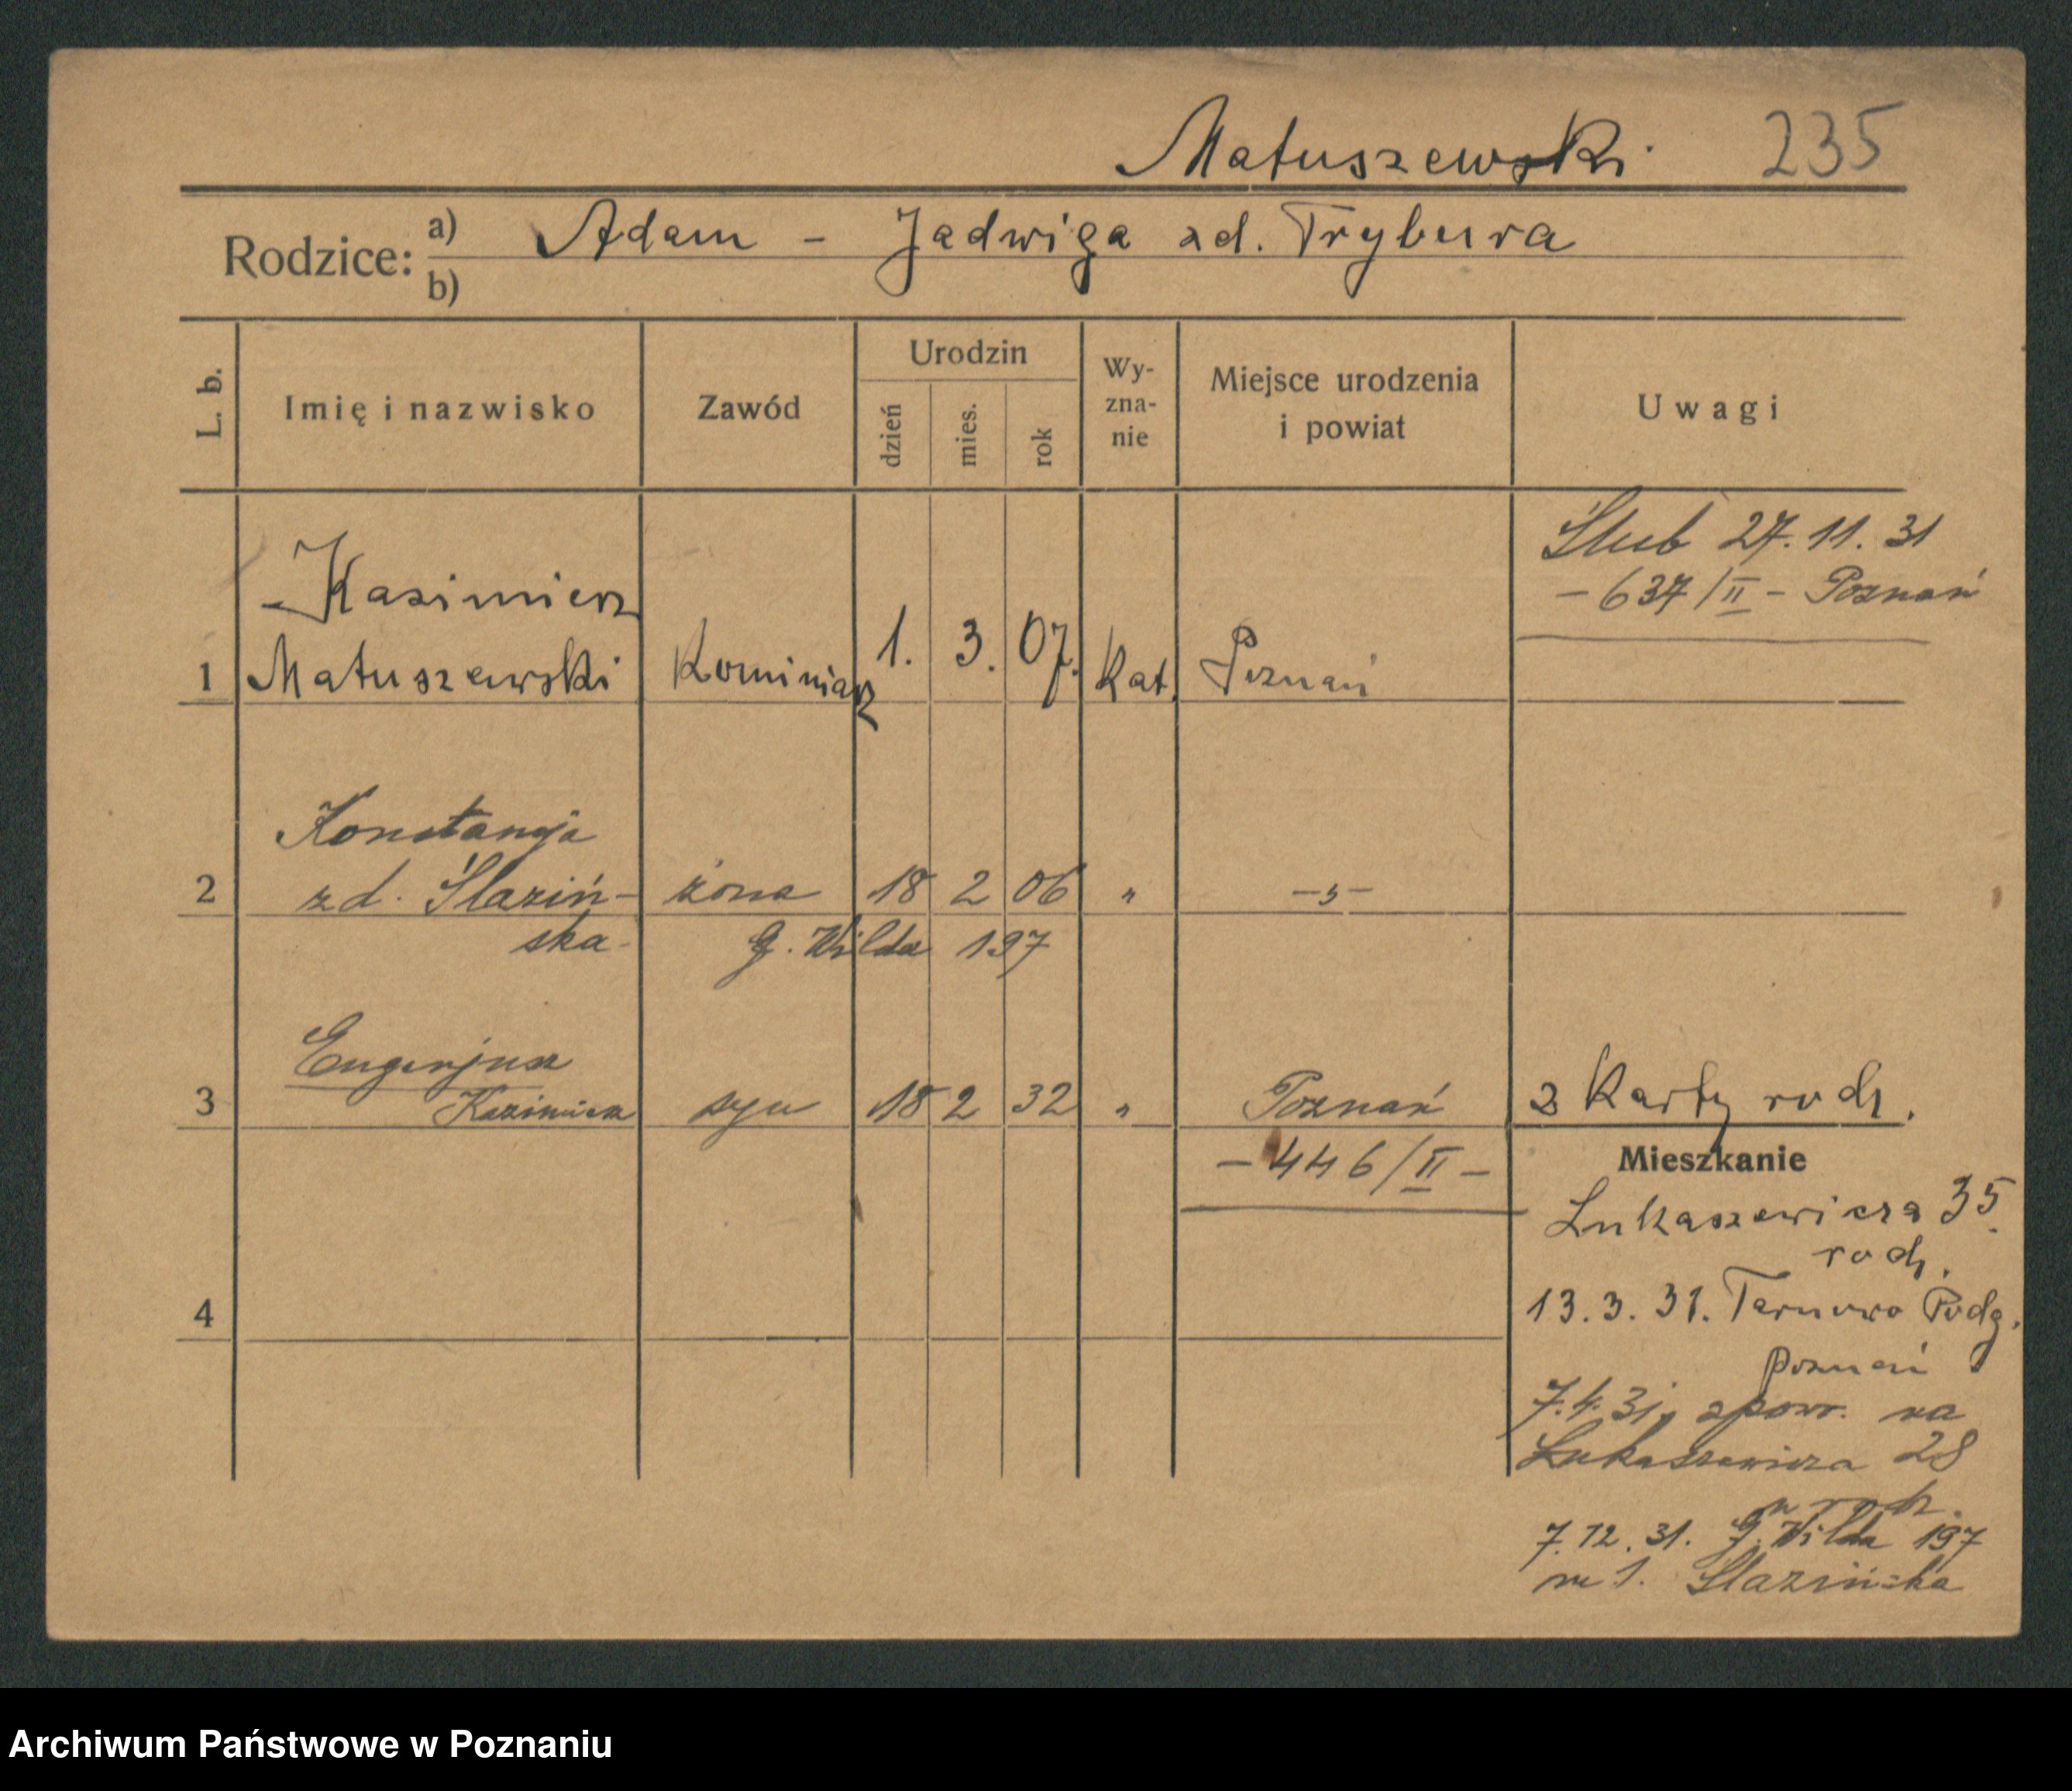 Matuszewski 235
Rodzice: a) Adam - Jadwiga zd. Trybura
b)
L. b.
Imię i nazwisko
Zawód
Urodzin
dzień
mies.
rok
Wy-
zna-
nie
Miejsce urodzenia
i powiat
Uwagi
Ślub 27.11.31
- 637/II - Poznań
Kazimierz
1 Matuszewski Kominiarz 1. 3. 07. Kat. Poznań
Konstancja
2 zd. Ślaziń- żona 18 2 06 " -"-
ska- G. Wilda 197
Eugenjusz
3 Kazimierz syn 18 2 32 " Poznań z Karty rodz.
- 446/II -
Mieszkanie
Łukaszewicza 35
rodz.
4
13.3.31. Tarnowo Podg.
Poznań
7.4.31, zpowr. na
Łukaszewicza 28
w rodz.
7.12.31. G. Wilda 197
m 1. Ślazińska
Archiwum Państwowe w Poznaniu